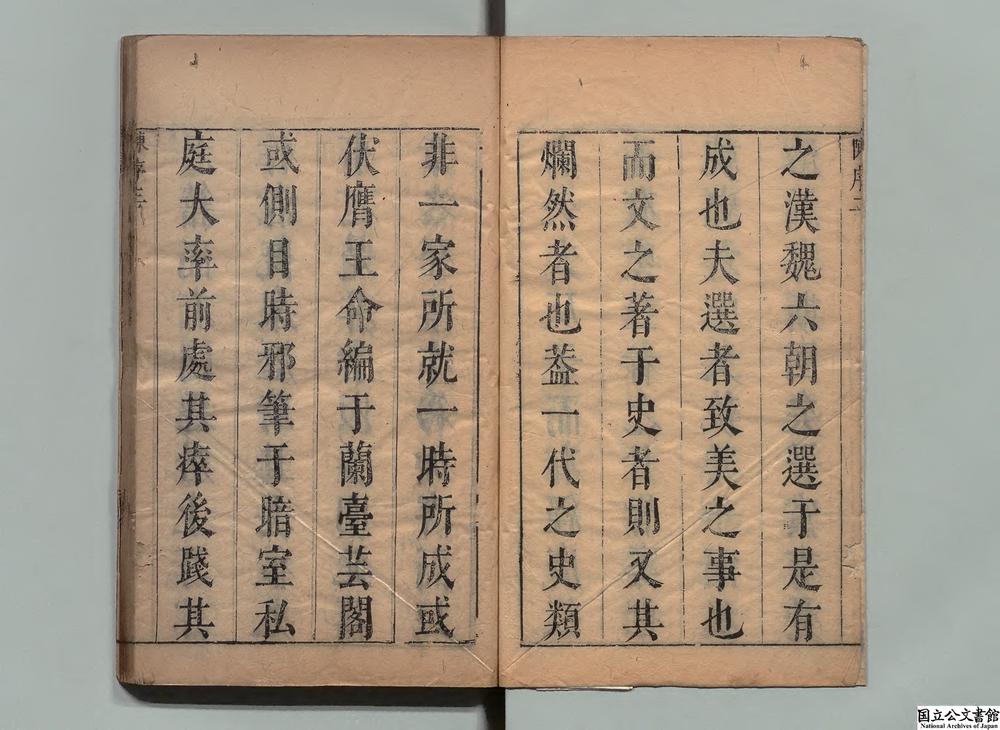 之漢魏六朝之選于是有
成也夫選者致美之事也
而文之著于史者則又其
爛然者也葢一代之史類
非一家所就一時所成或
伏膺王命編于蘭臺芸閣
或側目時邪筆于暗室私
庭大率前處其瘁後踐其
国立公文書館
National Archives of Japan